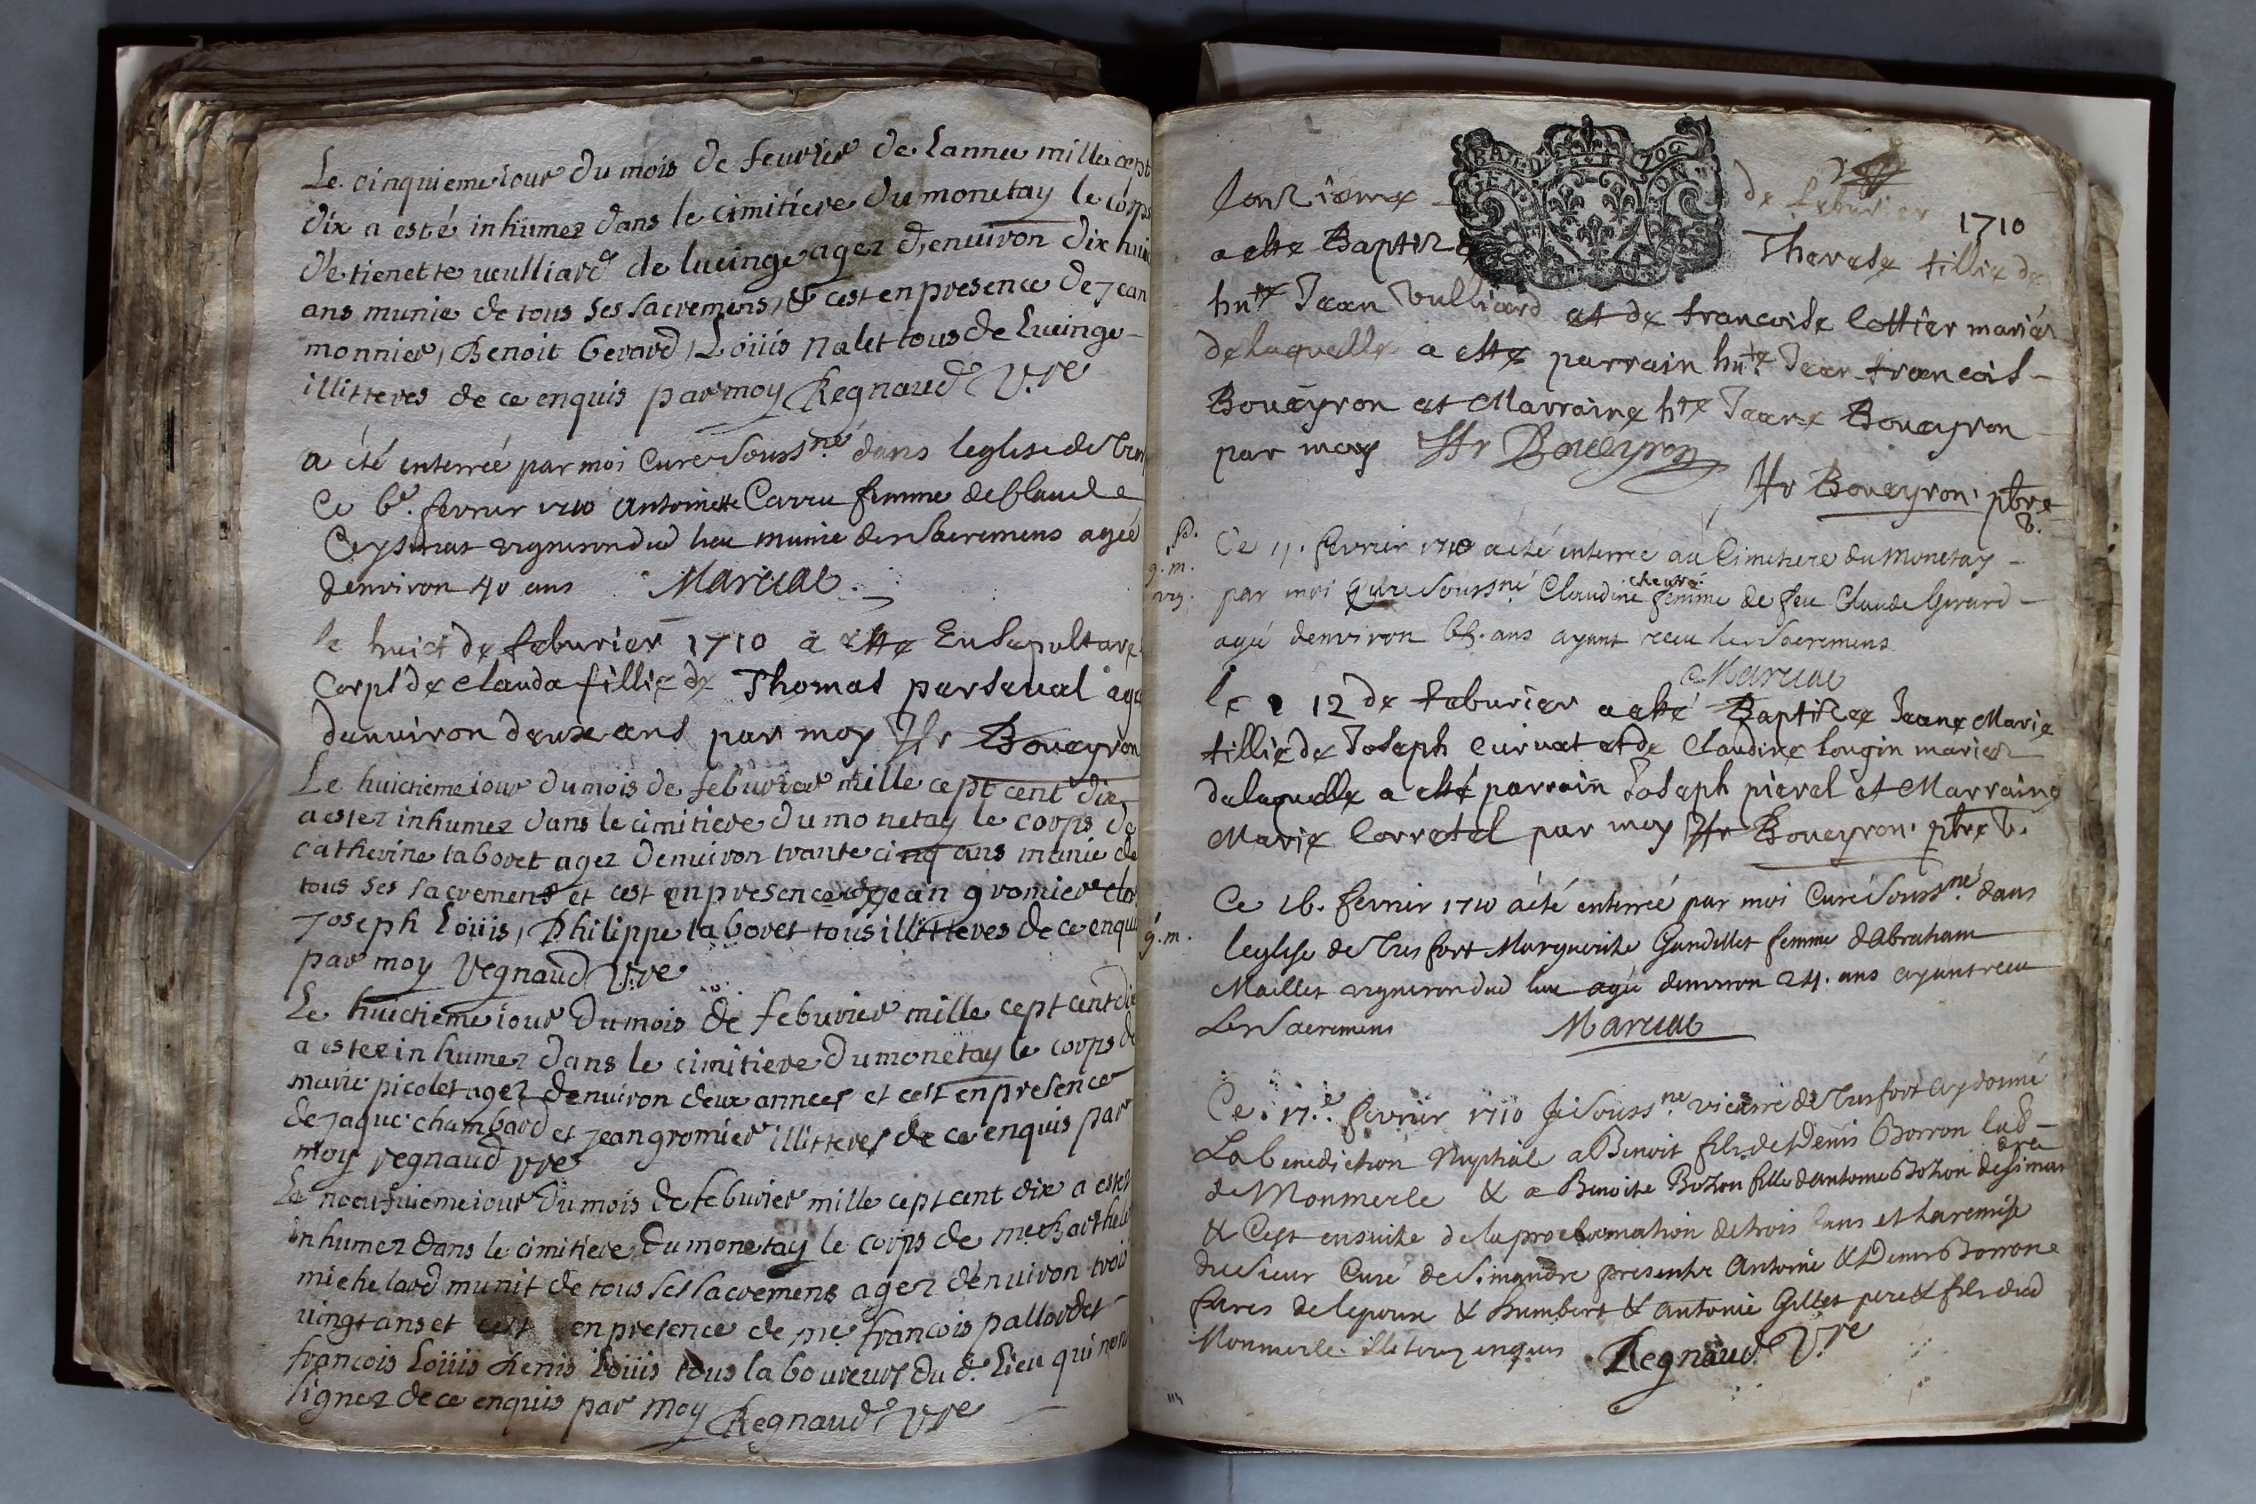 Le cinquieme iour du mois de feurier de lannee mille cept
dix a esté inhumez dans le cimitiere du monetay le corps
d'etienette veulliard de lucinge agez d'enuiron dix huit
ans munie de tous ses sacremens, & cest en presence de jean
monnier, Benoit Gerard, Loüis nalet tous de Lucinge
illitteres de ce enquis par moy Regnaud V.re
a été enterrée par moi Curé Soussne. dans leglise de
Ce 6e. fevrier 1710 Antoinette Carru femme de Claude
vigneron dud lieu munie des Sacremens agée
denviron 40 ans Marcial
le huict de feburier 1710 a este Ensepulture
Corps de clauda fillie de Thomas parseual age
danuiron deux ans par moy Boueyron
Le huictieme iour du mois de feburier mille cept cent dix
a estez inhumez dans le cimitiere du monetay le corps de
catherine taboret agez denuiron trante cinq ans munie de
tous ses sacremens et cest en presence de jean gromier
Joseph Loüis, Philippe taboret tous illitteres de ce enquis
par moy Regnaud V.re
Le huictieme iour du mois de feburier mille cept cent dix
a estez inhumez dans le cimitiere du monetay le corps de
marie picolet agez denuiron deux annees et cest en presence
de jaque chambard et jean gromier illitteres de ce enquis par
moy regnaud vre
Le noeufuieme iour du mois de feburier mille cept cent dix a estez
inhumez dans le cimitiere du monetay le corps de
michelard munit de tous ses sacremens agez dénuiron trois
uingt ans et cest en presence de me francois pallordet
francois Loüis denis Loüis tous laboureurs du d. Lieu qui nont
signez de ce enquis par moy Regnaud Vre
1710
lonzieme de feburier
a este Baptizé Therese fillie de
hnte Jean Vulliard et de francoise Cottier mariéz
de laquelle a este parrain hnte Jean francois
Boueyron et Marraine hte Jeane Boueyron
par moy Boueyron
Boueyron ptre
v.
Ce 11. fevrier 1710 a été enterrée au Cimetiere du Monetay
par moi Curé Soussné Claudine femme de feu Claude Girard
agée denviron 65. ans ayant receu les Sacremens
Marcial
g. m.
le 12 de feburier a esté Baptizee Jeane Marie
fillie de Joseph Curuat et de Claudine Longin mariez
de laquelle a esté parrain Joseph pierel et Marraine
Marie Corretel par moy Boueyron ptre v.
Ce 16. fevrier 1710 a été enterrée par moi Curé Soussné. dans
g. m.
leglise de Tresfort Marguerite Gandillet femme dAbraham
Maillet vigneron dud lieu agée denviron 24. ans ayant receu
Les Sacremens Marcial
Ce. 17.e fevrier 1710 Je Soussne. vicaire de Tresfort ay donné
La benediction Nuptiale a Benoit fils de Denis Borron lab
de Monmerle & a Benoite Bozon fille dantoine Bozon de Siman
dre
& Cest ensuite de la proclamation de trois bans et la remise
du Sieur Curé de Simandre presents Antoine & Denis Borron
freres de lepoux & humbert & antoine Gillet pere & fils dud
Monmerle enquis Regnaud V.re